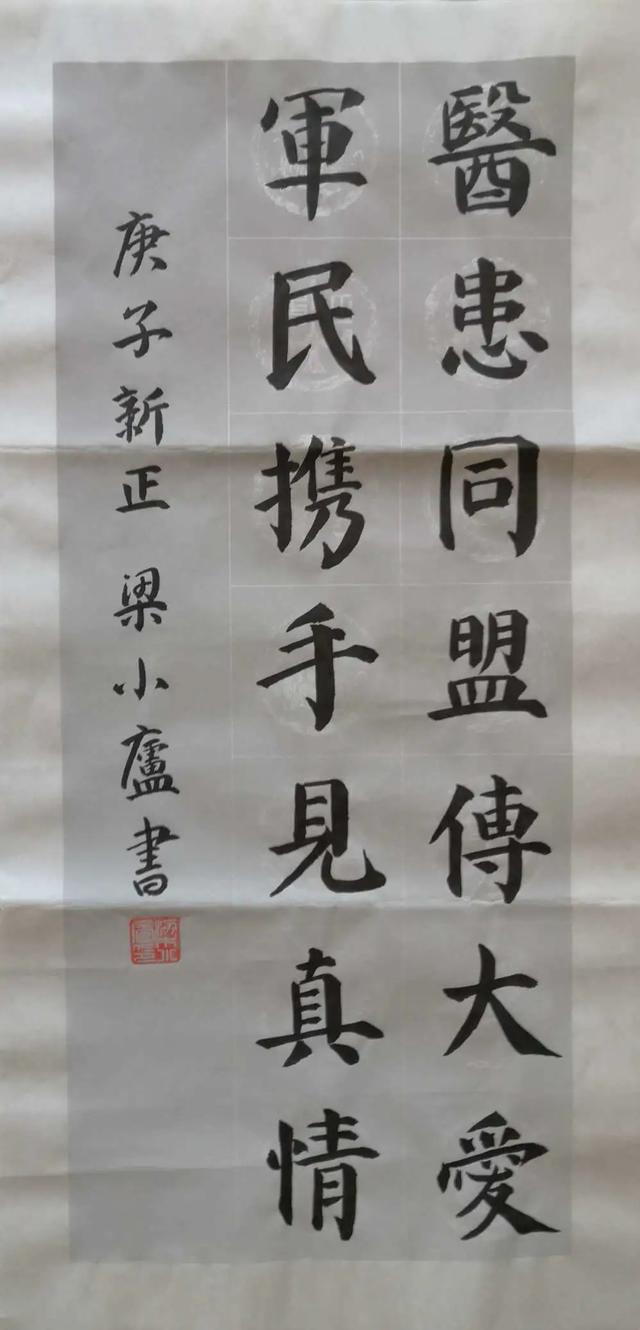 醫患同盟傳大愛
軍民携手見真情
庚子新正 梁小廬書